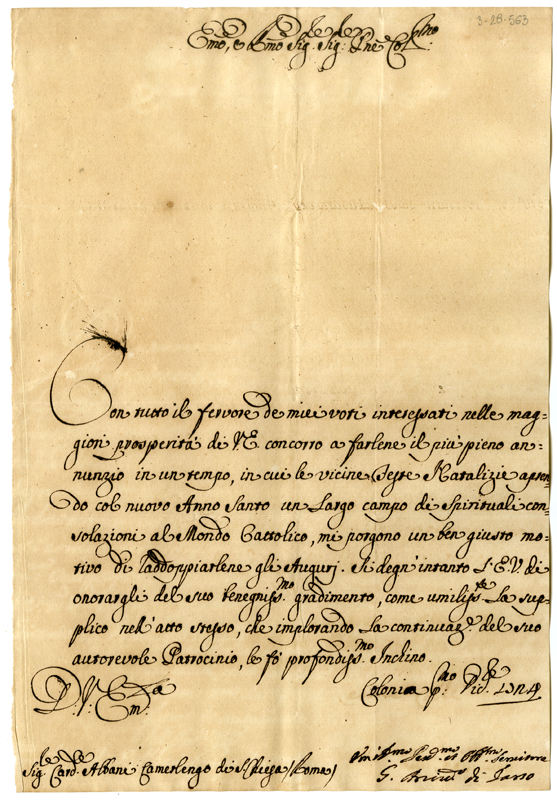 3-28-563
Emo, e Rmo Sig. Sig. Pne Colmo
Con tutto il fervore de miei voti interessati nelle mag=
giori prosperità di V.E. concorro a farlene il più pieno an=
nunzio in un tempo, in cui le vicine Feste Natalizie apren=
do col nuovo Anno Santo un Largo campo di Spirituali con=
solazioni al Mondo Cattolico, mi porgono un ben giusto mo=
tivo di raddoppiarlene gli Augurj. Si degn' intanto L'E.V. di
onorargli del suo benegniss.mo gradimento, come umiliss.te La sup=
plico nell' atto stesso, che implorando La continuaz.e del suo
autorevole Patrocinio, le fò profondiss.mo Inchino.
D. V. Em.za
Colonia p.mo
Sig. Card. Albani Camerlengo di S. Chiesa (Roma)
Servitore
G. di